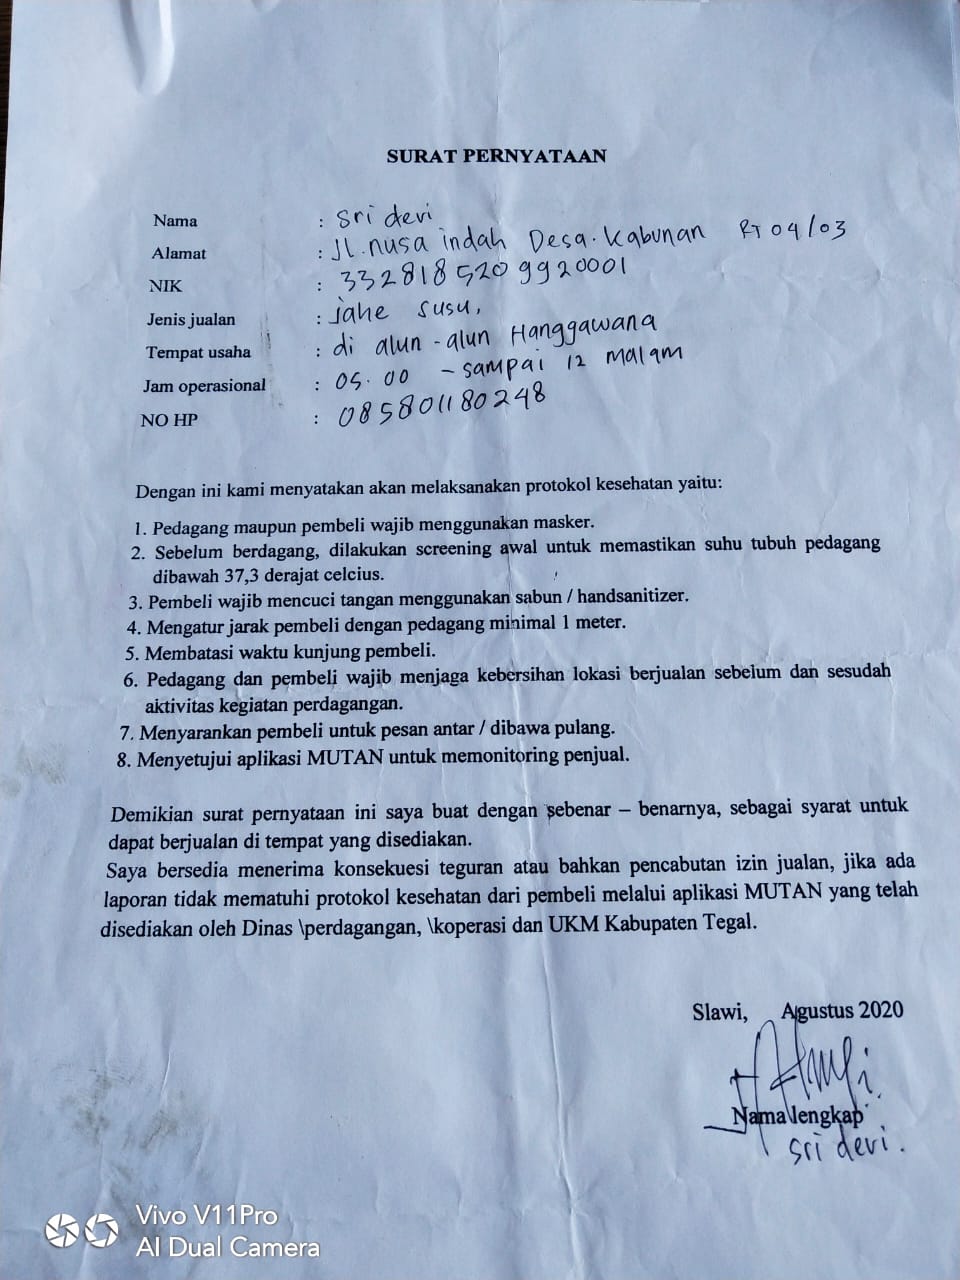 SURAT PERNYATAAN
Nama : Sri devi
Alamat : Jl. nusa indah Desa. Kabunan RT 04/03
NIK : 3328185209920001
Jenis jualan : jahe susu,
Tempat usaha : di alun - alun Hanggawana
Jam operasional : 05.00 - sampai 12 malam
NO HP : 085801180248
Dengan ini kami menyatakan akan melaksanakan protokol kesehatan yaitu:
1. Pedagang maupun pembeli wajib menggunakan masker.
2. Sebelum berdagang, dilakukan screening awal untuk memastikan suhu tubuh pedagang
dibawah 37,3 derajat celcius.
3. Pembeli wajib mencuci tangan menggunakan sabun / handsanitizer.
4. Mengatur jarak pembeli dengan pedagang minimal 1 meter.
5. Membatasi waktu kunjung pembeli.
6. Pedagang dan pembeli wajib menjaga kebersihan lokasi berjualan sebelum dan sesudah
aktivitas kegiatan perdagangan.
7. Menyarankan pembeli untuk pesan antar / dibawa pulang.
8. Menyetujui aplikasi MUTAN untuk memonitoring penjual.
Demikian surat pernyataan ini saya buat dengan sebenar – benarnya, sebagai syarat untuk
dapat berjualan di tempat yang disediakan.
Saya bersedia menerima konsekuesi teguran atau bahkan pencabutan izin jualan, jika ada
laporan tidak mematuhi protokol kesehatan dari pembeli melalui aplikasi MUTAN yang telah
disediakan oleh Dinas \perdagangan, \koperasi dan UKM Kabupaten Tegal.
Slawi, Agustus 2020
Nama lengkap
Sri devi.
Vivo V11Pro
AI Dual Camera